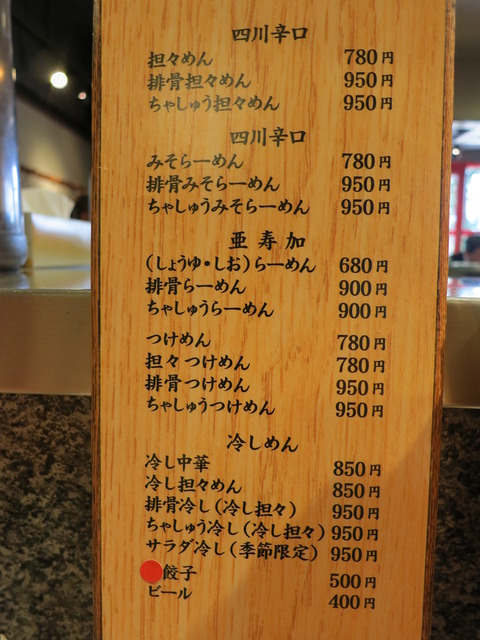 四川辛口
担々めん 780円
排骨担々めん 950円
ちゃしゅう担々めん 950円
四川辛口
みそらーめん 780円
排骨みそらーめん 950円
ちゃしゅうみそらーめん 950円
亜寿加
(しょうゆ・しお)らーめん 680円
排骨らーめん 900円
ちゃしゅうらーめん 900円
つけめん 780円
担々つけめん 780円
排骨つけめん 950円
ちゃしゅうつけめん 950円
冷しめん
冷し中華 850円
冷し担々めん 850円
排骨冷し(冷し担々) 950円
ちゃしゅう冷し(冷し担々) 950円
サラダ冷し(季節限定) 950円
餃子 500円
ビール 400円